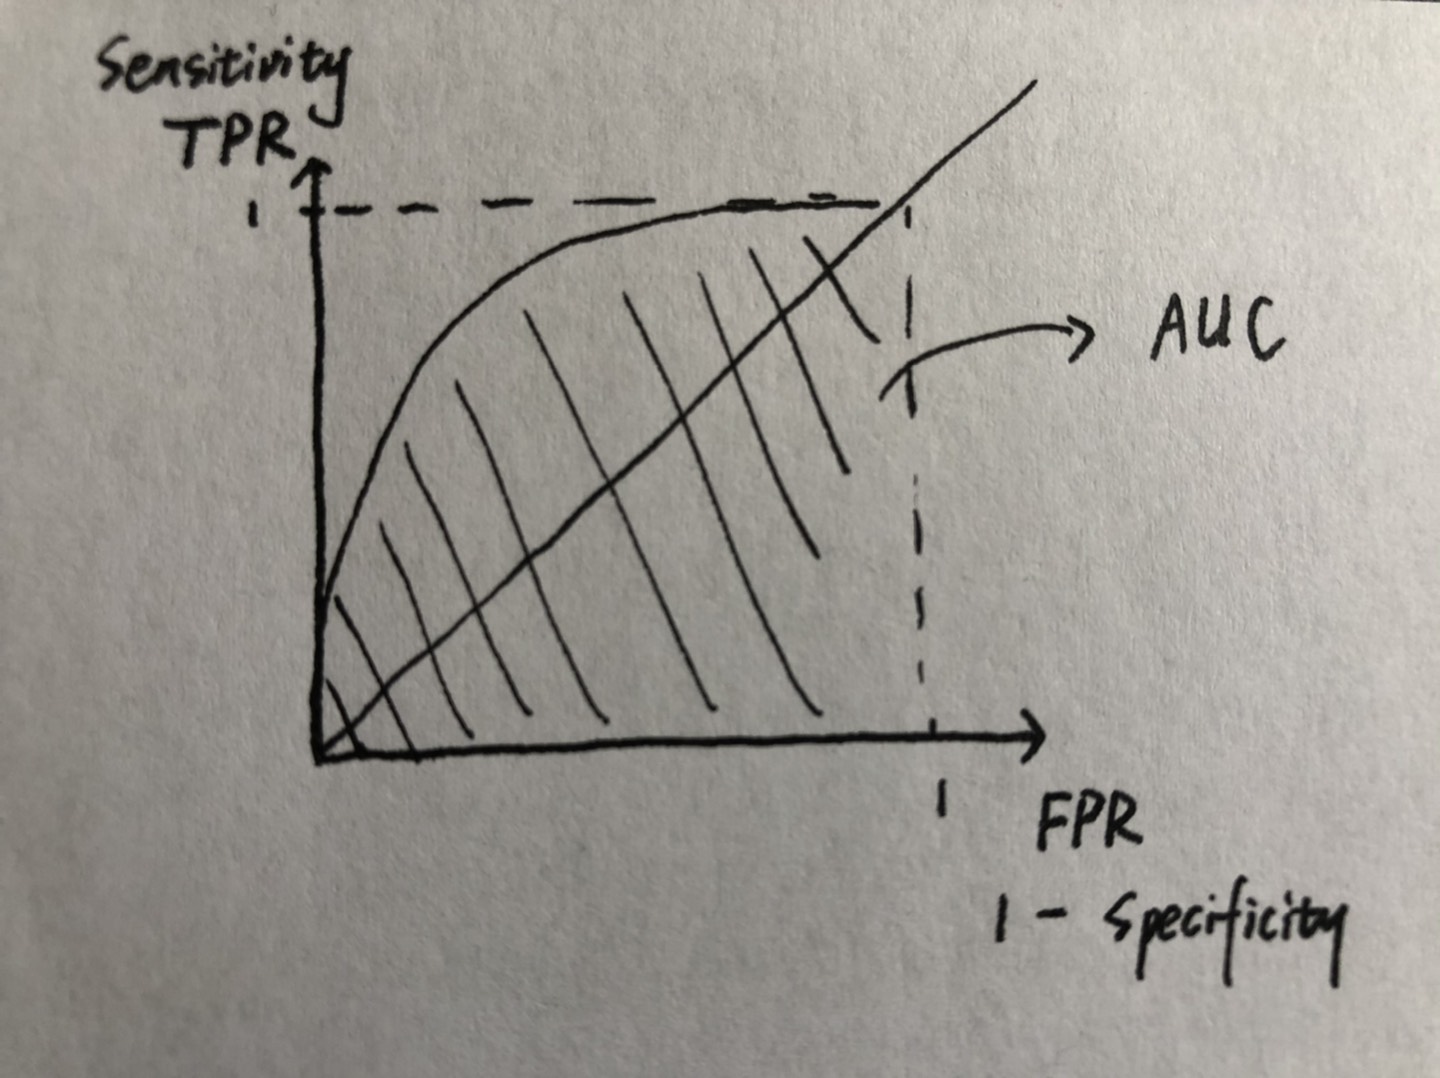 Sensitivity
TPR
1
AUC
1
FPR
1 - Specificity